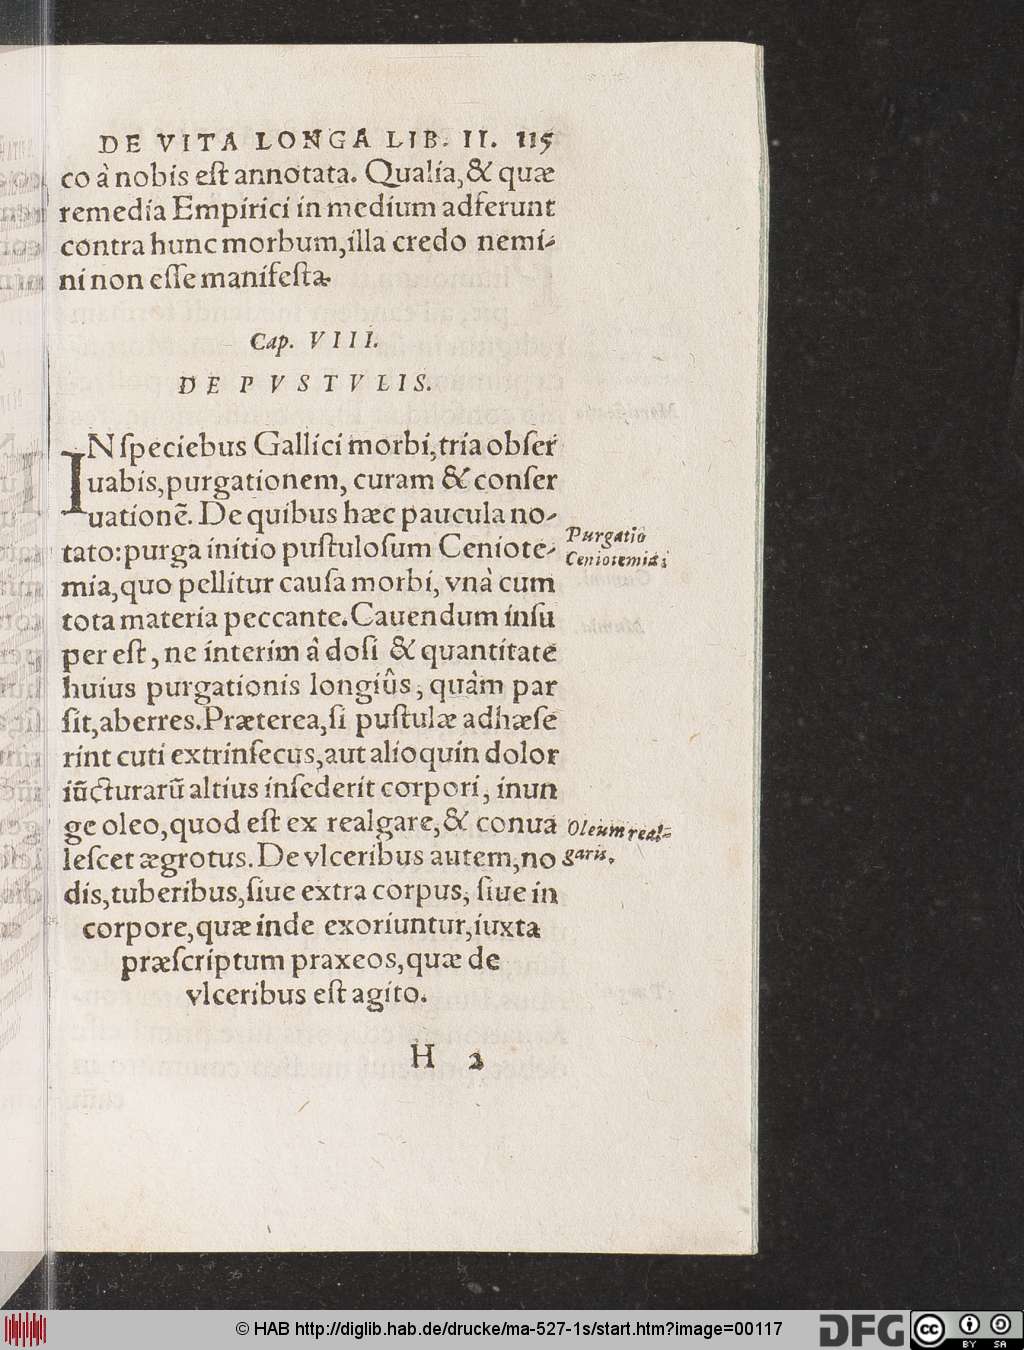 DE VITA LONGA LIB. II. 115
co à nobis eſt annotata. Qualia, & quæ
remedia Empirici in medium adferunt
contra hunc morbum, illa credo nemi-
ni non eſſe manifeſta.
Cap. VIII.
DE PVSTVLIS.
IN ſpeciebus Gallici morbi, tria obſer
uabis, purgationem, curam & conſer
uationẽ. De quibus hæc paucula no-
tato: purga initio puſtuloſum Ceniote-
mia, quo pellitur cauſa morbi, vnà cum
tota materia peccante. Cauendum inſu
per eſt, ne interim à doſi & quantitate
huius purgationis longiûs, quàm par
ſit, aberres. Præterea, ſi puſtulæ adhæſe
rint cuti extrinſecus, aut alioquin dolor
iũcturarũ altius inſederit corpori, inun
ge oleo, quod eſt ex realgare, & conua
leſcet ægrotus. De vlceribus autem, no
dis, tuberibus, ſiue extra corpus, ſiue in
corpore, quæ inde exoriuntur, iuxta
præſcriptum praxeos, quæ de
vlceribus eſt agito.
Purgatio
Ceniotemiæ
Oleum real-
garis.
H 2
© HAB http://diglib.hab.de/drucke/ma-527-1s/start.htm?image=00117
DFG
cc
BY SA